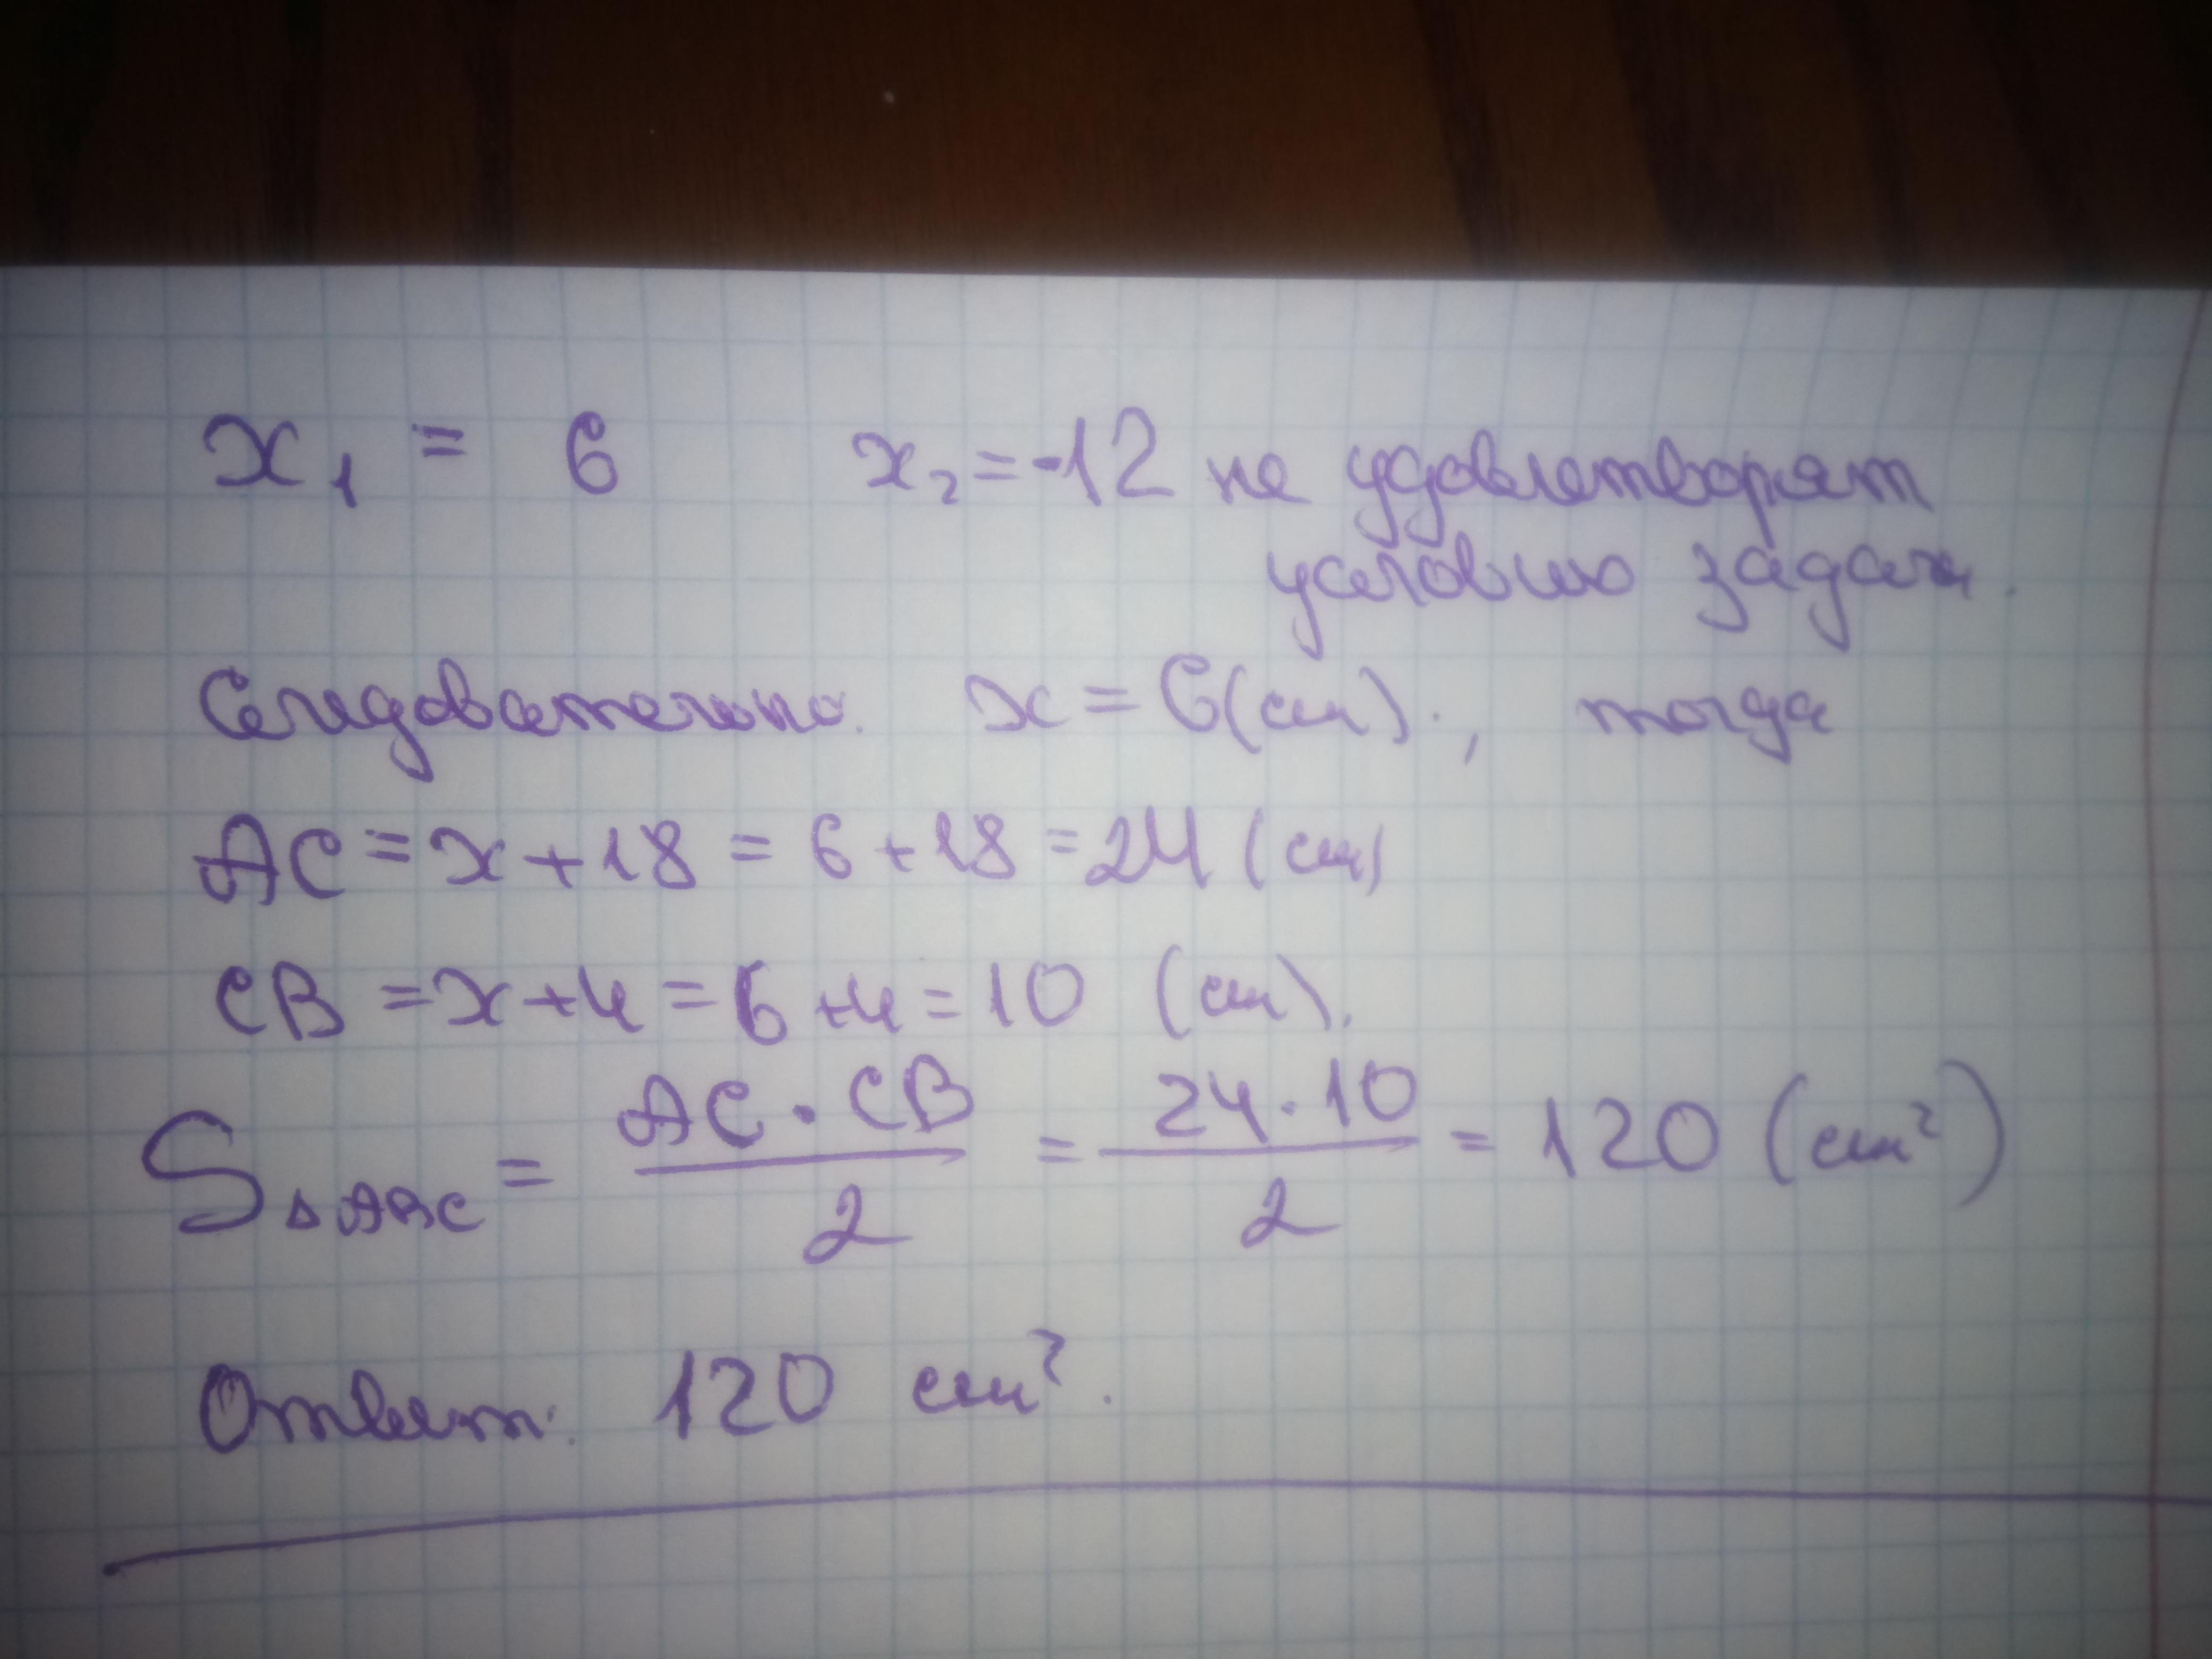 x₁ = 6 x₂ = -12 не удовлетворят
условию задачи.
Следовательно. x = 6 (см)., тогда
AC = x + 18 = 6 + 18 = 24 (см)
CB = x + 4 = 6 + 4 = 10 (см).
S△ABC = AC · CB / 2 = 24 · 10 / 2 = 120 (см²)
Ответ: 120 см².